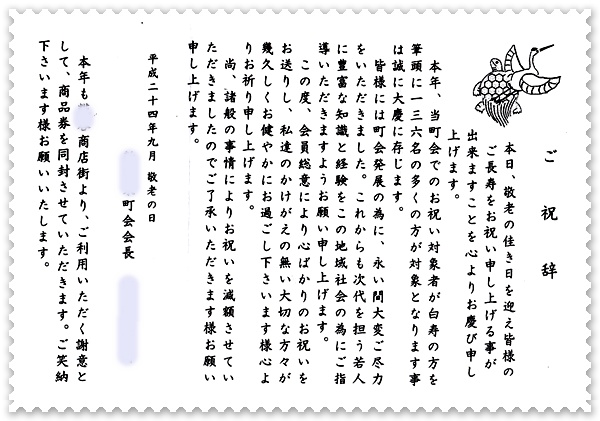 ご祝辞
本日、敬老の佳き日を迎え皆様の
ご長寿をお祝い申し上げる事が
出来ますことを心よりお慶び申し
上げます。
本年、当町会でのお祝い対象者が白寿の方を
筆頭に一三六名の多くの方が対象となります事
は誠に大慶に存じます。
皆様には町会発展の為に、永い間大変ご尽力
をいただきました。これからも次代を担う若人
に豊富な知識と経験をこの地域社会の為にご指
導いただきますようお願い申し上げます。
この度、会員総意により心ばかりのお祝いを
お送りし、私達のかけがえの無い大切な方々が
幾久しくお健やかにお過ごし下さいます様心よ
りお祈り申し上げます。
尚、諸般の事情によりお祝いを減額させてい
ただきましたのでご了承いただきます様お願い
申し上げます。
平成二十四年九月 敬老の日
町会会長
本年も 商店街より、ご利用いただく謝意と
して、商品券を同封させていただきます。ご笑納
下さいます様お願いいたします。